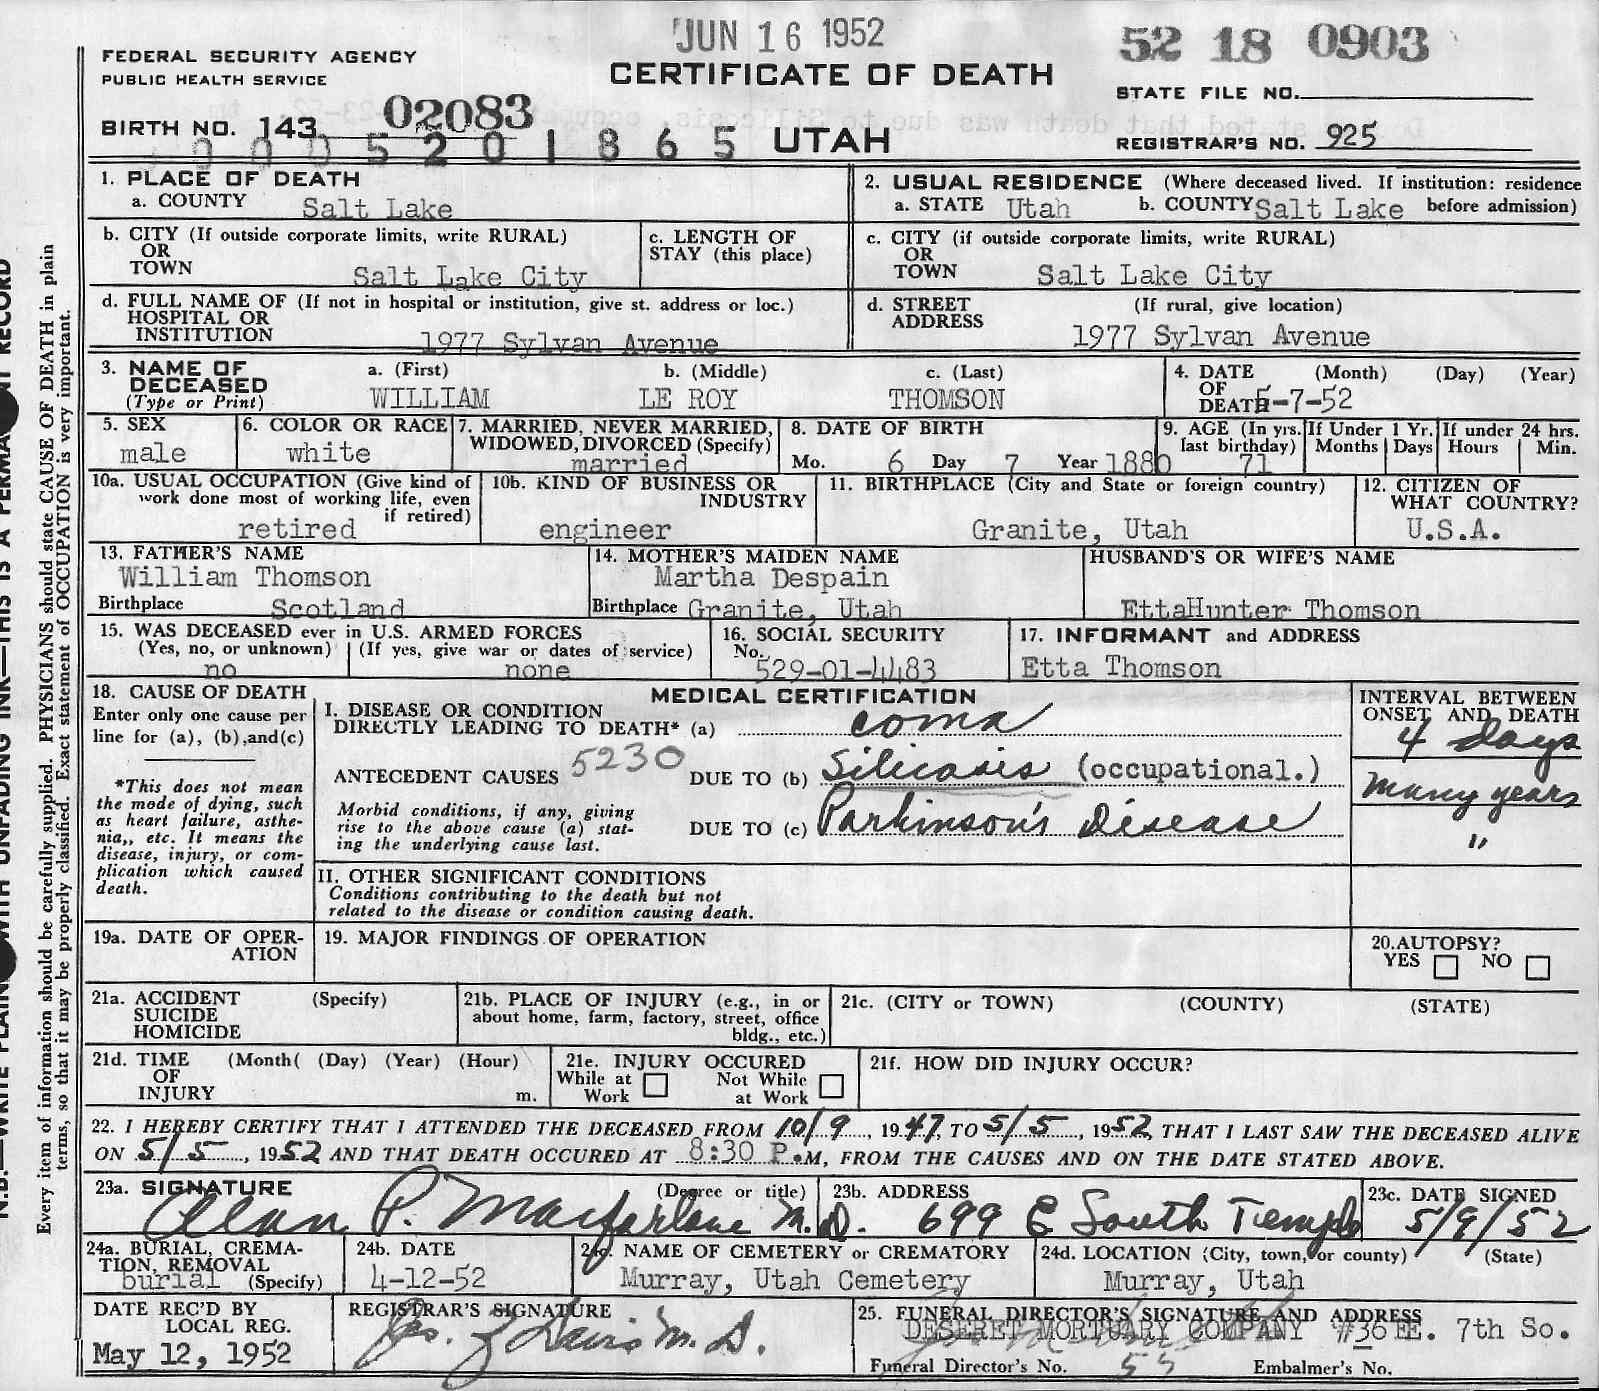 JUN 16 1952
52 18 0903
FEDERAL SECURITY AGENCY
PUBLIC HEALTH SERVICE
CERTIFICATE OF DEATH
STATE FILE NO.
02083
BIRTH NO. 143
0005201865 UTAH
REGISTRAR'S NO. 925
1. PLACE OF DEATH
a. COUNTY Salt Lake
2. USUAL RESIDENCE (Where deceased lived. If institution: residence
a. STATE Utah b. COUNTY Salt Lake before admission)
b. CITY (If outside corporate limits, write RURAL)
OR
TOWN Salt Lake City
c. LENGTH OF
STAY (this place)
c. CITY (if outside corporate limits, write RURAL)
OR
TOWN Salt Lake City
d. FULL NAME OF (If not in hospital or institution, give st. address or loc.)
HOSPITAL OR
INSTITUTION 1977 Sylvan Avenue
d. STREET (If rural, give location)
ADDRESS 1977 Sylvan Avenue
3. NAME OF DECEASED
(Type or Print)
a. (First) b. (Middle) c. (Last)
WILLIAM LE ROY THOMSON
4. DATE (Month) (Day) (Year)
OF
DEATH 5-7-52
5. SEX
male
6. COLOR OR RACE
white
7. MARRIED, NEVER MARRIED,
WIDOWED, DIVORCED (Specify)
married
8. DATE OF BIRTH
Mo. 6 Day 7 Year 1880
9. AGE (In yrs. last birthday) 71
If Under 1 Yr. Months Days
If under 24 hrs. Hours Min.
10a. USUAL OCCUPATION (Give kind of
work done most of working life, even
if retired)
retired
10b. KIND OF BUSINESS OR
INDUSTRY
engineer
11. BIRTHPLACE (City and State or foreign country)
Granite, Utah
12. CITIZEN OF
WHAT COUNTRY?
U.S.A.
13. FATHER'S NAME
William Thomson
Birthplace Scotland
14. MOTHER'S MAIDEN NAME
Martha Despain
Birthplace Granite, Utah
HUSBAND'S OR WIFE'S NAME
EttaHunter Thomson
15. WAS DECEASED ever in U.S. ARMED FORCES
(Yes, no, or unknown) (If yes, give war or dates of service)
no none
16. SOCIAL SECURITY
No. 529-01-4483
17. INFORMANT and ADDRESS
Etta Thomson
18. CAUSE OF DEATH
Enter only one cause per
line for (a), (b), and (c)
*This does not mean
the mode of dying, such
as heart failure, asthe-
nia,, etc. It means the
disease, injury, or com-
plication which caused
death.
MEDICAL CERTIFICATION
I. DISEASE OR CONDITION
DIRECTLY LEADING TO DEATH* (a) coma
ANTECEDENT CAUSES 5230 DUE TO (b) Silicosis (occupational.)
Morbid conditions, if any, giving
rise to the above cause (a) stat-
ing the underlying cause last.
DUE TO (c) Parkinson's Disease
INTERVAL BETWEEN
ONSET AND DEATH
4 days
Many years
"
II. OTHER SIGNIFICANT CONDITIONS
Conditions contributing to the death but not
related to the disease or condition causing death.
19a. DATE OF OPER-
ATION
19. MAJOR FINDINGS OF OPERATION
20. AUTOPSY?
YES NO
21a. ACCIDENT (Specify)
SUICIDE
HOMICIDE
21b. PLACE OF INJURY (e.g., in or
about home, farm, factory, street, office
bldg., etc.)
21c. (CITY or TOWN) (COUNTY) (STATE)
21d. TIME (Month( (Day) (Year) (Hour)
OF
INJURY m.
21e. INJURY OCCURED
While at Work Not While at Work
21f. HOW DID INJURY OCCUR?
22. I HEREBY CERTIFY THAT I ATTENDED THE DECEASED FROM 10/9, 1947, TO 5/5, 1952, THAT I LAST SAW THE DECEASED ALIVE
ON 5/5, 1952 AND THAT DEATH OCCURED AT 8:30 P.M, FROM THE CAUSES AND ON THE DATE STATED ABOVE.
23a. SIGNATURE (Degree or title)
Alan P. Macfarlane M.D.
23b. ADDRESS
699 E South Temple
23c. DATE SIGNED
5/9/52
24a. BURIAL, CREMA-
TION, REMOVAL
burial (Specify)
24b. DATE
4-12-52
24c. NAME OF CEMETERY or CREMATORY
Murray, Utah Cemetery
24d. LOCATION (City, town, or county) (State)
Murray, Utah
DATE REC'D BY
LOCAL REG.
May 12, 1952
REGISTRAR'S SIGNATURE
Davis M.D.
25. FUNERAL DIRECTOR'S SIGNATURE AND ADDRESS
DESERET MORTUARY COMPANY #36 E. 7th So.
Funeral Director's No. 55 Embalmer's No.
Every item of information should be carefully supplied. PHYSICIANS should state CAUSE OF DEATH in plain
terms, so that it may be properly classified. Exact statement of OCCUPATION is very important.